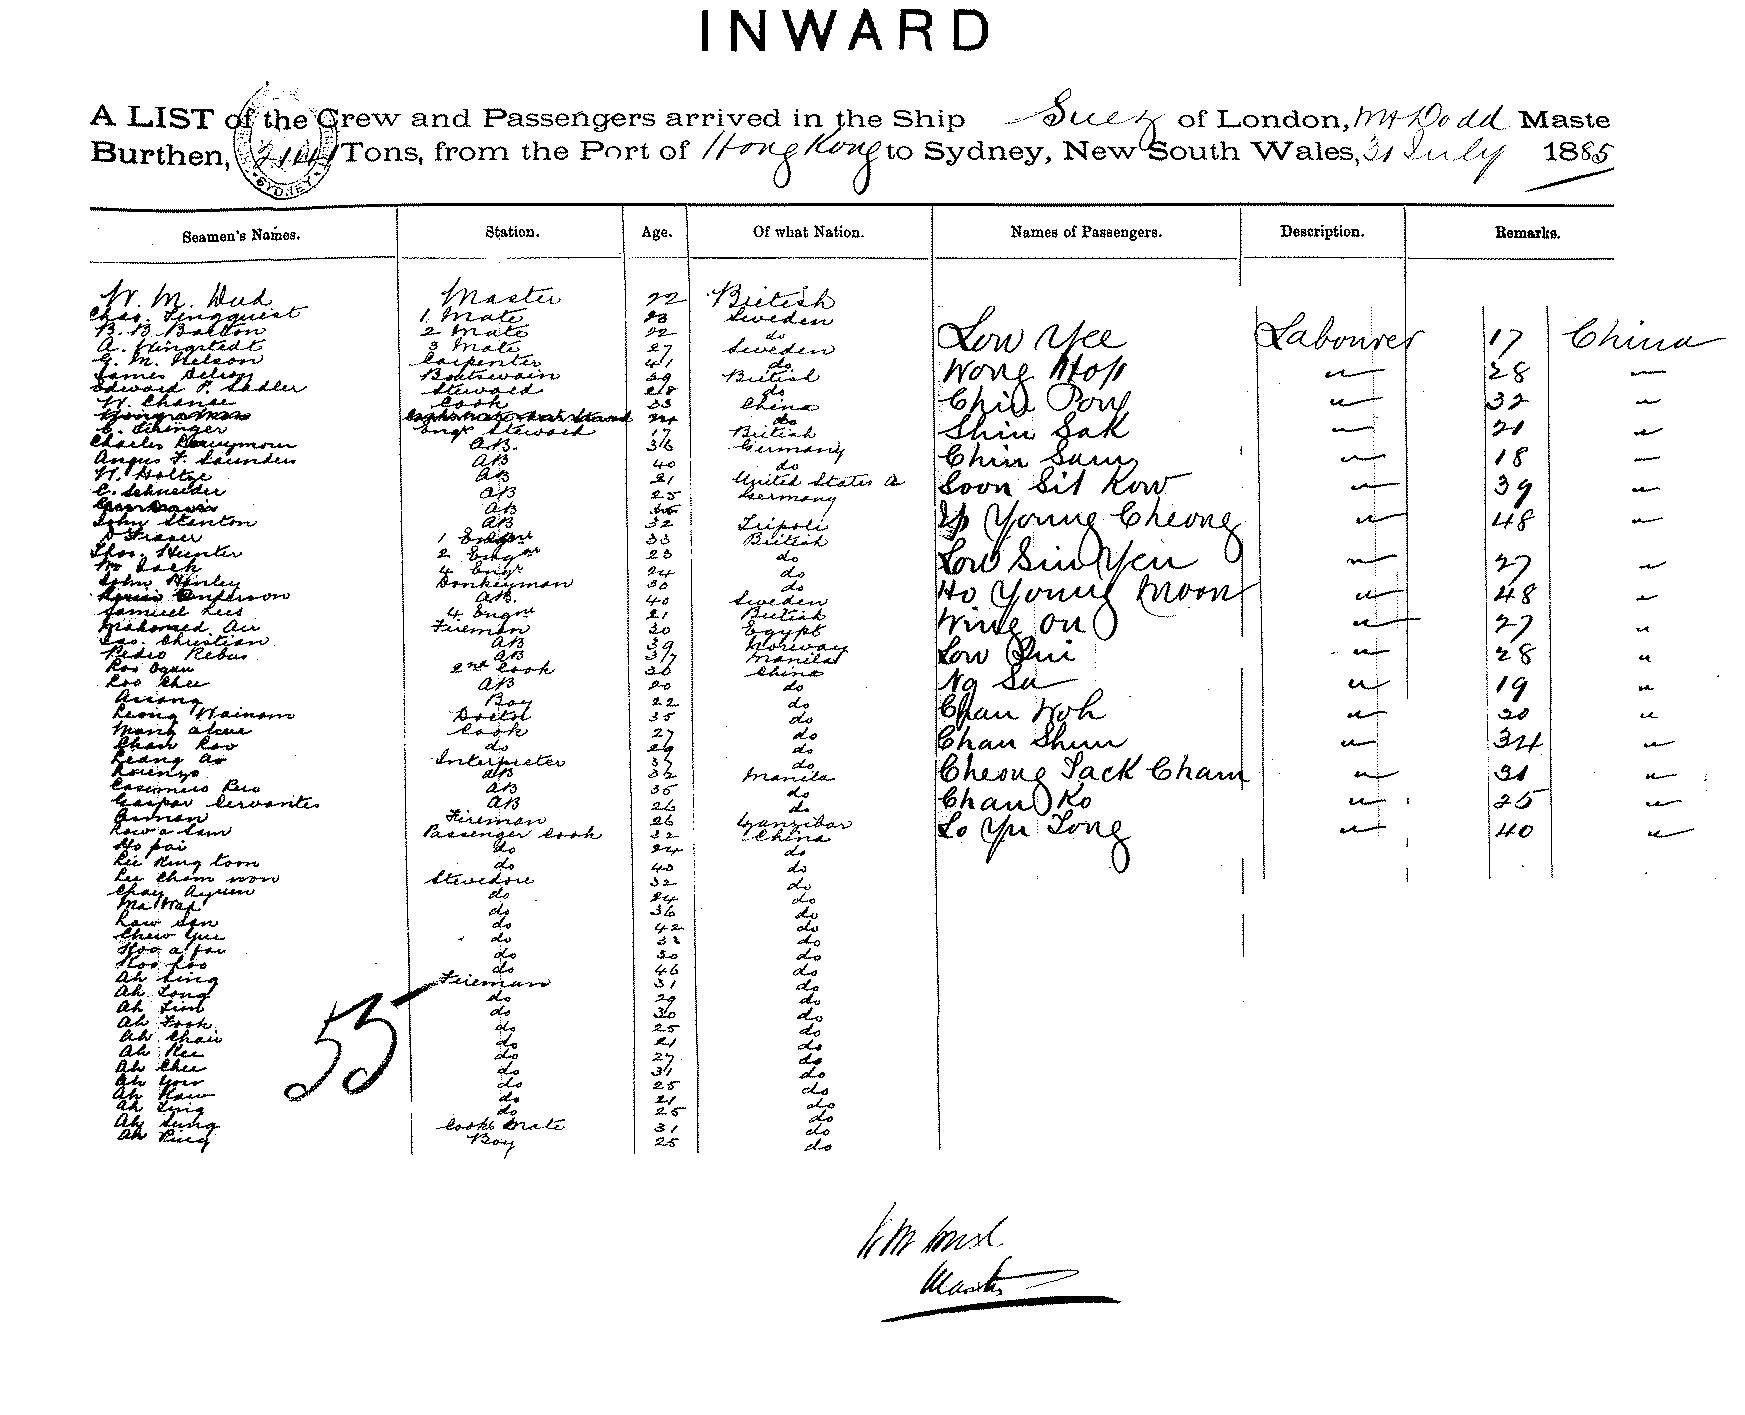 INWARD
A LIST of the Crew and Passengers arrived in the Ship Suez of London, Dodd Maste
Burthen, Tons, from the Port of Hong Kong to Sydney, New South Wales, 31 July 1885
SYDNEY
Seamen's Names. Station. Age. Of what Nation. Names of Passengers. Description. Remarks.
W. M. Dod Master British
Chas. Linqquist 1 Mate 23 Sweden
B. B. Balton 2 Mate 22 do Low Yee Labourer 17 China
A. Kingstedt 3 Mate 27 Sweden
G. M. Nelson Carpenter 41 do Wong Hop " 28 "
James Nelson Boatswain 39 British
Edward P. Sadler Steward 28 do Chin Pory " 32 "
W. Chanse Cook 33 China
do Shin Sak " 21 "
C. Stringer Engr Steward 17 British
Charles AB. 36 Germany Chin Sum " 18 "
Angus F. Saunders AB 40 do
W. Holtze AB 21 United States A Soon Sit Kow " 39 "
C. Schneider AB 25 Germany
AB Young Cheong " 48 "
John Stanton AB 32 Tripoli
D Fraser 1 Engr 33 British
Thos. Hunter 2 Engr 23 do Low Sin Yen " 27 "
Wm Jack 4 Engr 24 do
John Henley Donkeyman 30 do Ho Young Moon " 48 "
Anderson AB. 40 Sweden
Samuel Lees 4. Engr 21 British Wing On " 27 "
Mahomed Ali Fireman 30 Egypt
Chas. Christian AB 39 Norway Low Qui " 28 "
Pedro Rebus AB 37 Manila
2nd Cook 36 China Ng Su " 19 "
Koo Chee AB 20 do
Assang Boy 22 do Chan Woh " 20 "
Leong Wainam 35 do
Cook 27 do Chan Shun " 34 "
Chan Koo do 29 do
Leang Ao Interpreter 37 do Cheong Jack Cham " 31 "
Lorenzo AB 32 Manila
Casimiro Reo AB 35 do Chan Ko " 25 "
Gaspar Cervantes AB 26 do
Fireman 26 Zanzibar Lo Yu Tong " 40 "
Low a Sam Passenger Cook 32 China
Ho pai do 24 do
Lee King toon do 40 do
Lee Cham won Stevedore 32 do
Chay Ayuen do 24 do
do 36 do
Law San do 42 do
Chew Yue do do
Koo a fai do 30 do
Koo foo do 46 do
Ah Sing Fireman 31 do
Ah Long do 29 do
Ah Lion do 30 do
Ah Fook do 25 do
Ah Chair do 21 do
Ah Kee do 27 do
Ah Chee do 31 do
Ah Yow do 25 do
Ah Kaw do 21 do
Ah Sing do 25 do
Ah Sung Cooks Mate 31 do
Ah Ping Boy 25 do
55
Master